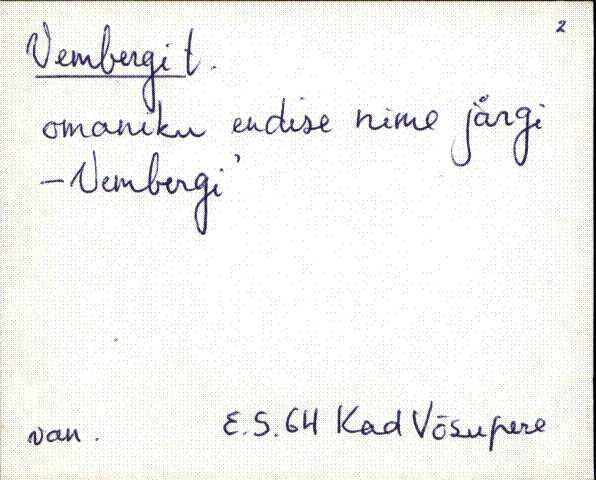 2
Vembergi t.
omaniku endise nime järgi
– Vembergi'
van. E. S. 64 Kad Võsupere